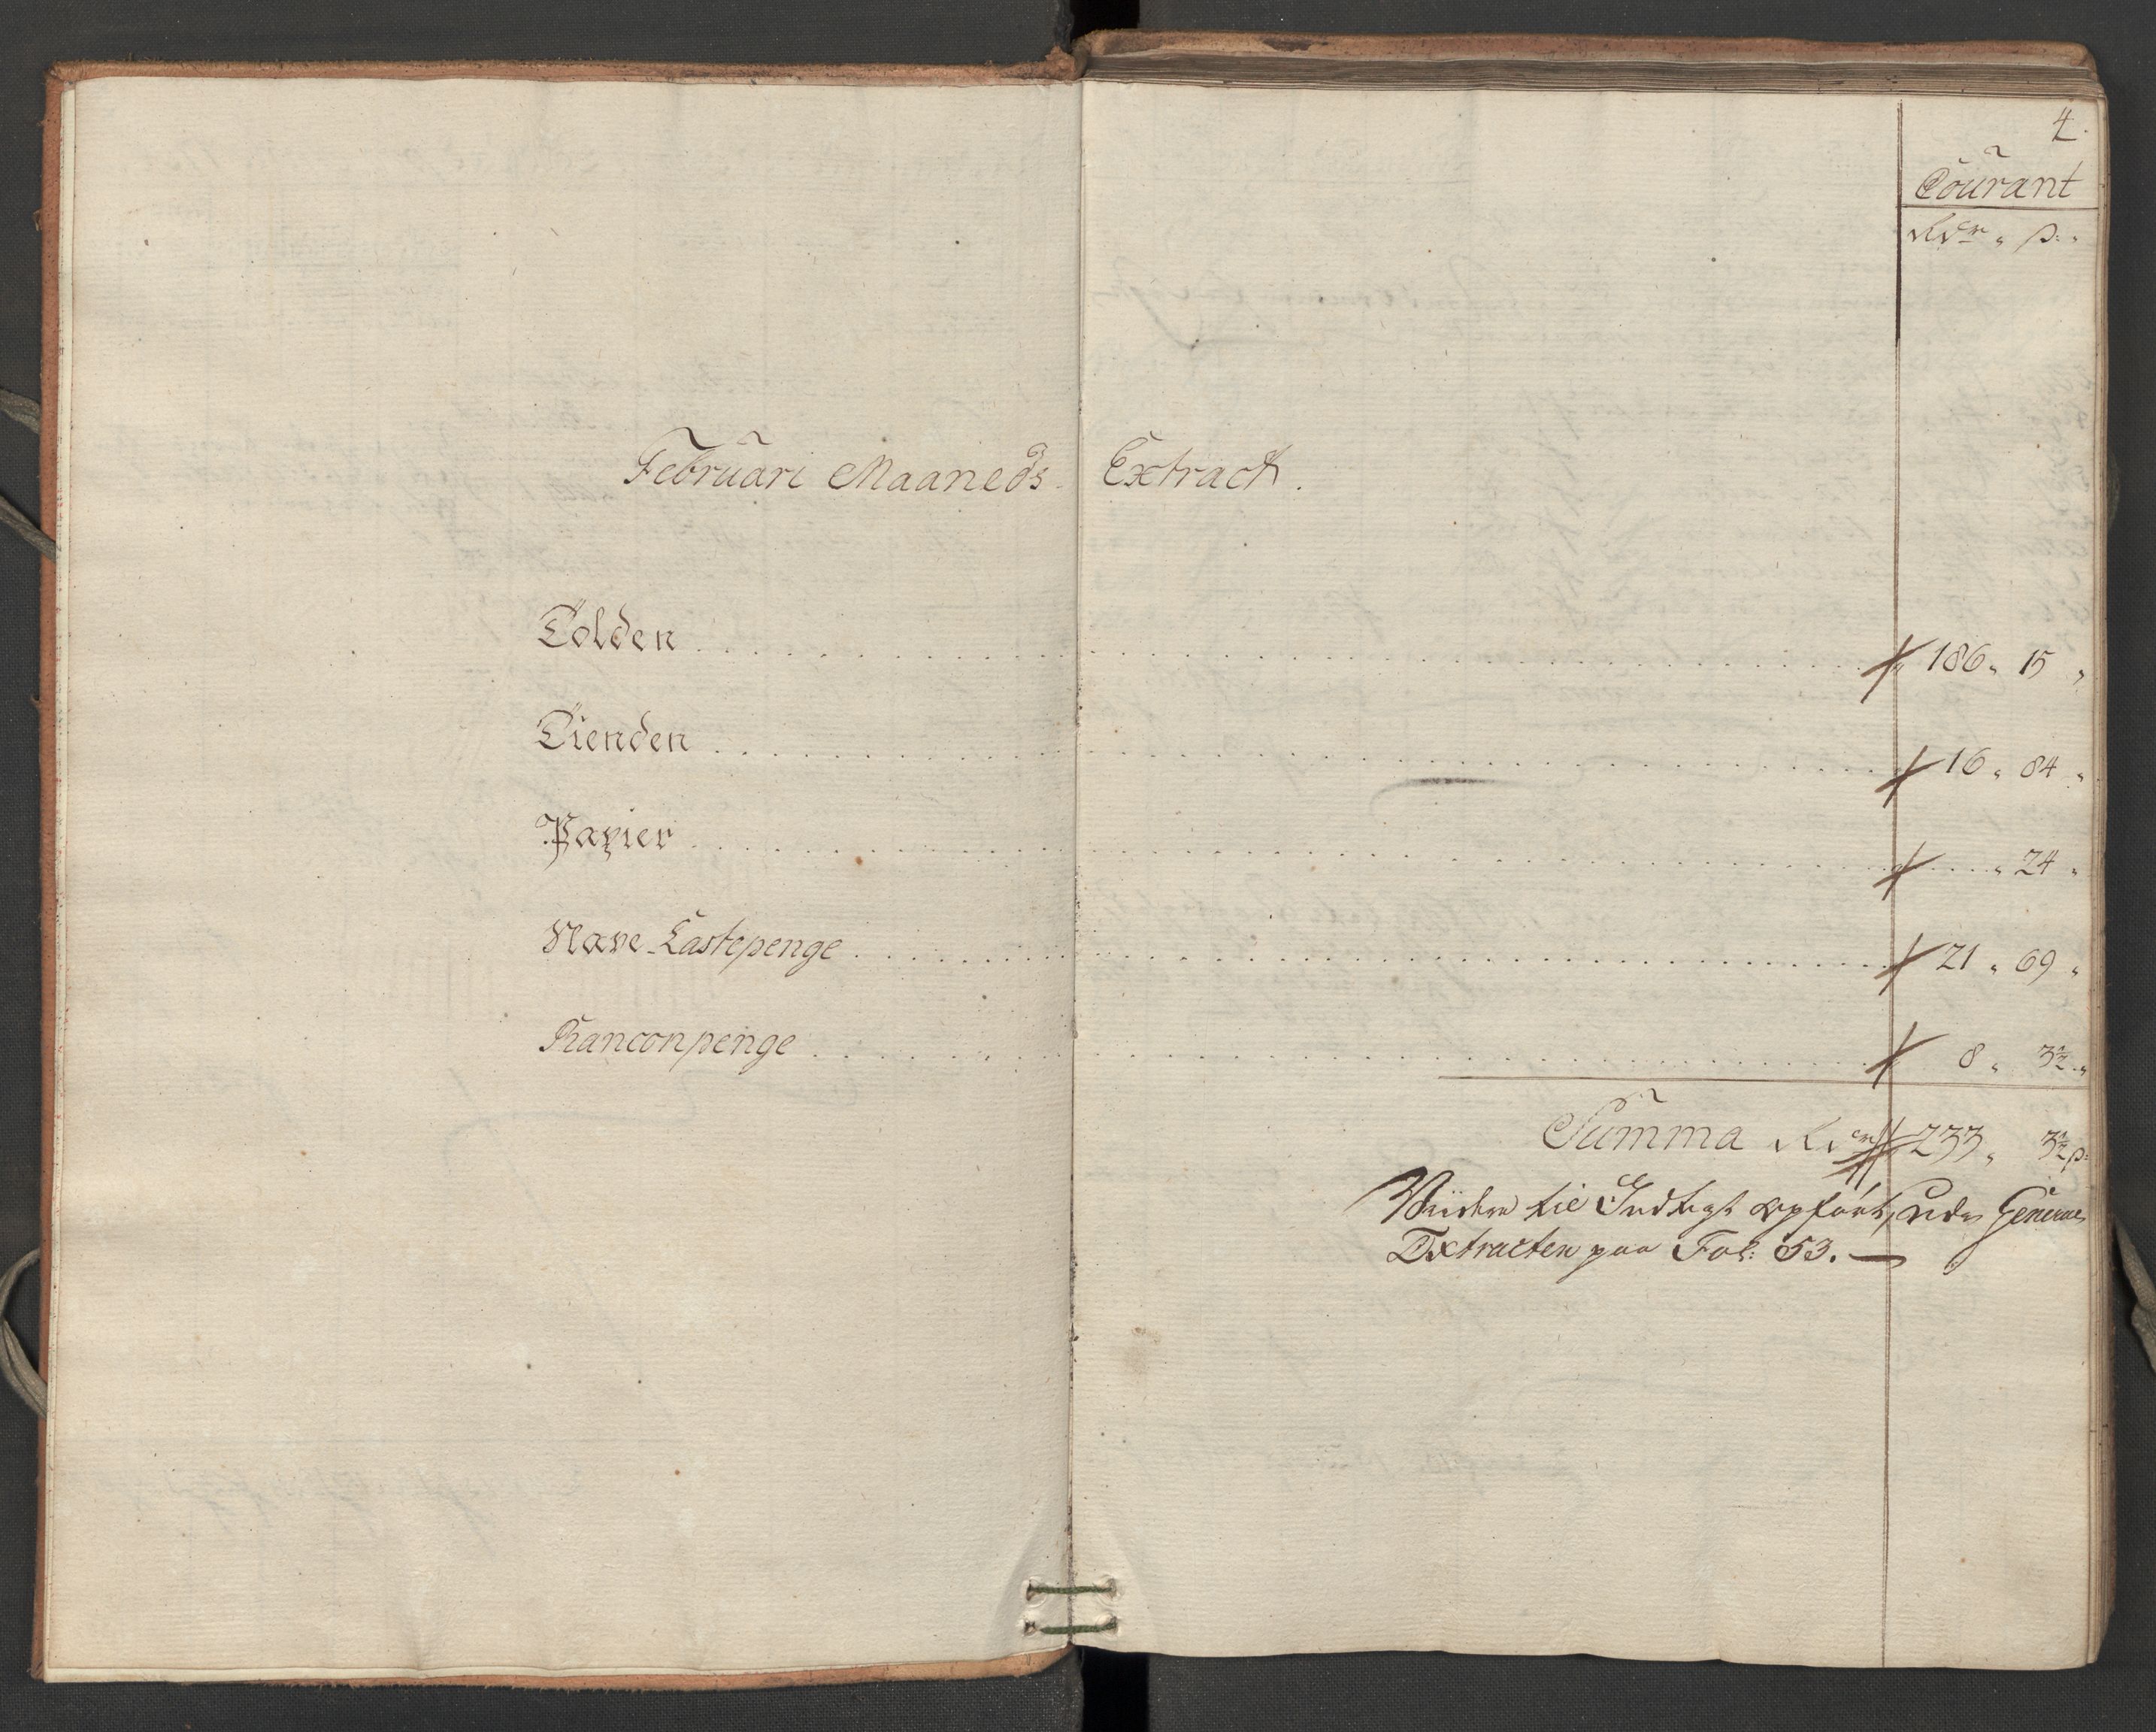 4.
Courant
Rdr „ ß: „
Februari Maaneds Extract.
Tolden . . . . . 186 „ 15 „
Tienden . . . . . 16 „ 84 „
Papier . . . . . „ 24 „
Nave Lastepenge . . . . . 21 „ 69 „
Ranconpenge . . . . . 8 „ 3½ „
Summa Rdr 233 „ 3½ ß:
til Indtægt opført, udi General
Extracten paa Fol: 53. —